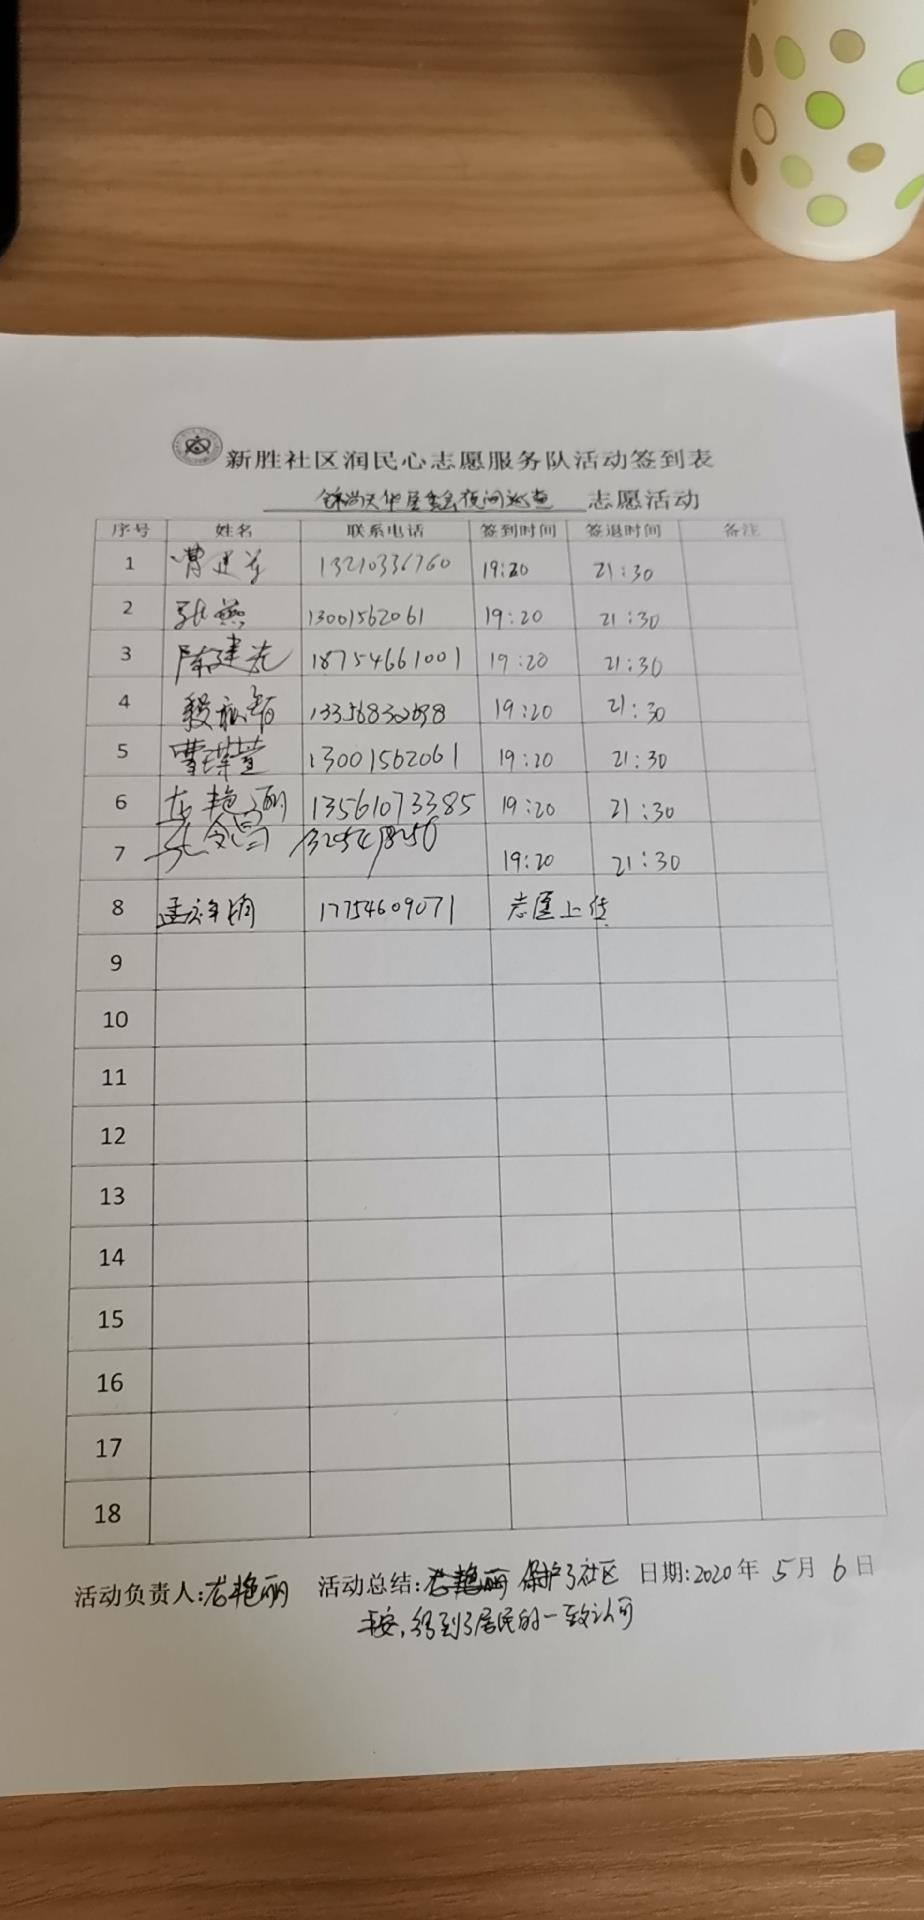 新胜社区润民心志愿服务队活动签到表
夜间巡查 志愿活动
序号 姓名 联系电话 签到时间 签退时间 备注
1 曹建 13210336760 19:20 21:30
2 张燕 13001562061 19:20 21:30
3 陈建光 18754661001 19:20 21:30
4 19:20 21:30
5 曹瑾萱 13001562061 19:20 21:30
6 左艳丽 13561073385 19:20 21:30
7 19:20 21:30
8 孟 17754609071 志愿上传
9
10
11
12
13
14
15
16
17
18
活动负责人:左艳丽 活动总结: 保护了社区 日期:2020年 5月 6日
平安,得到了居民的一致认可